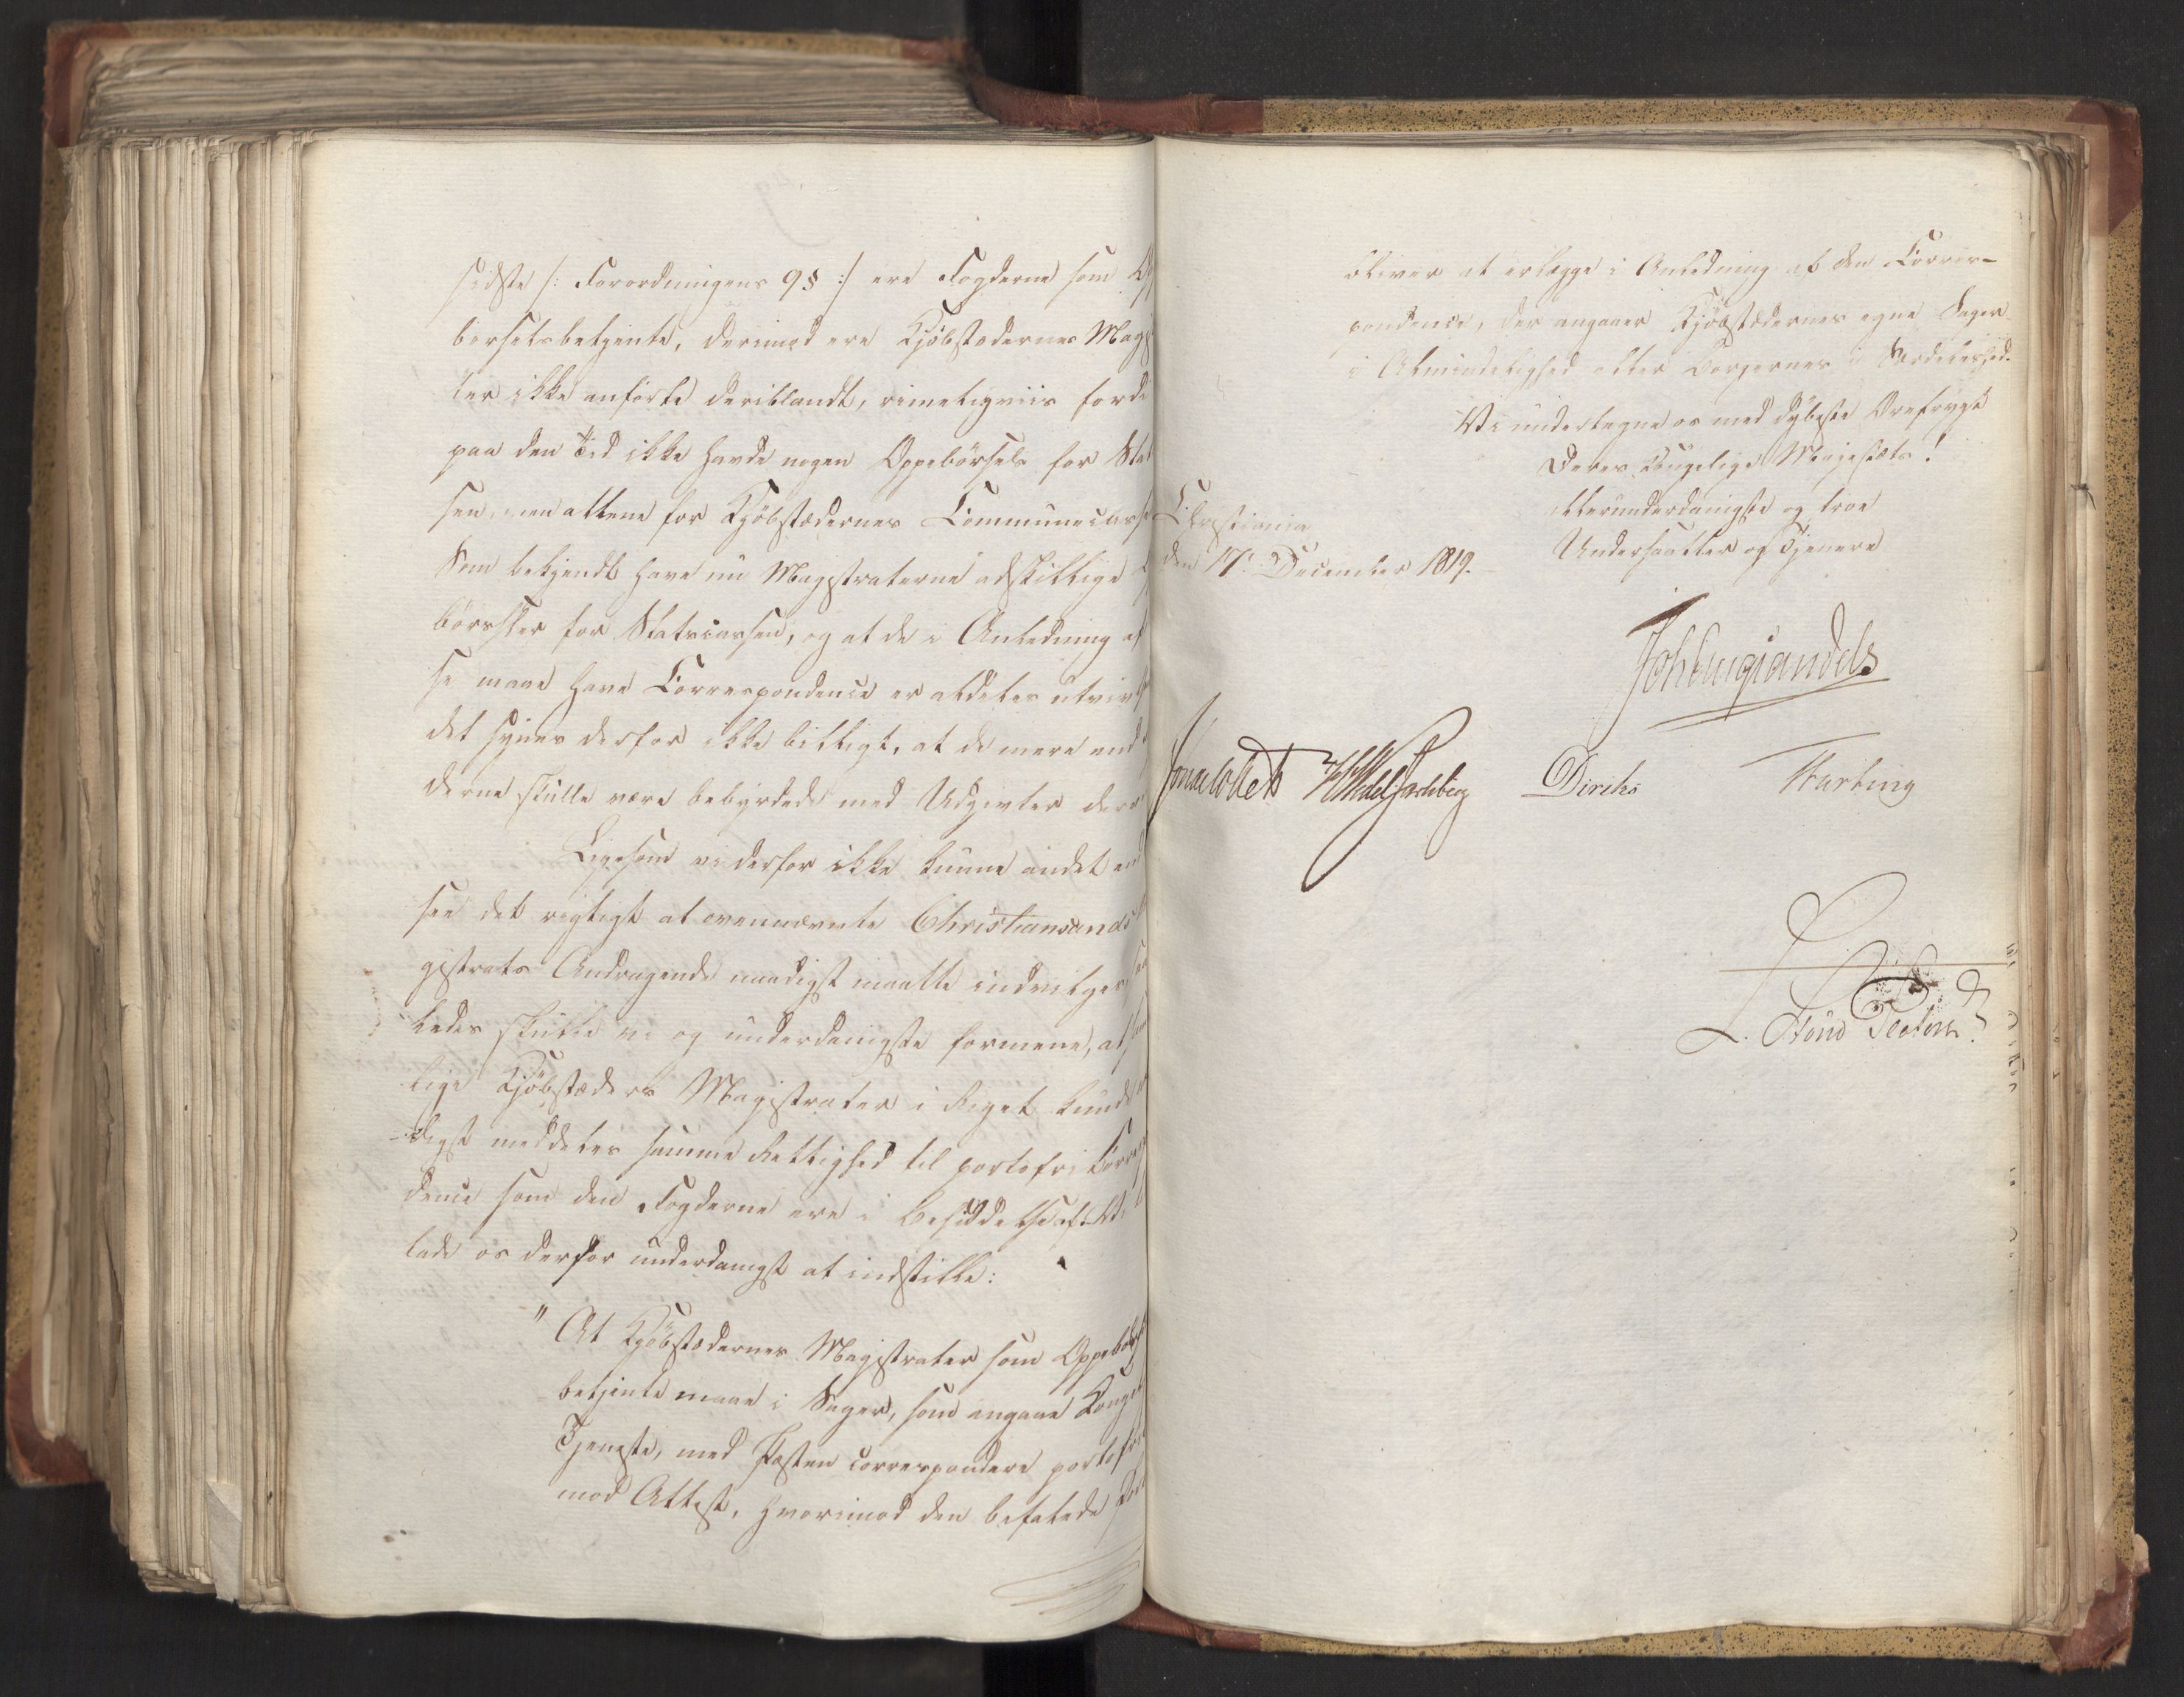 sidste /: Forordningens 9 § :/ ere Fogderne som Op
børselsbetjente, derimod ere Kjöbstædernes Magi
ter ikke anförte deriblandt, rimeligviis fordi
paa den Tid ikke havde nogen Oppebörseler for Stat
sen, men allene for Kjöbstædernes Communecasse
Som bekjendt have nu Magistraterne adskillige
börsler for Statscassen, og at de i Anledning af
se maae have Correspondence er aldeles utviv
det synes derfor ikke billigt, at de mere end
derne skulle være bebyrdede med Udgivter der
Ligesom vi derfor ikke kunne andet end
see det rigtigt at ovennævnte Christiansands
gistrats Andragende naadigst maatte indvilges
ledes skulle vi og underdanigste formene, at
lige Kjöbstæders Magistrater i Riget kunde
digst meddeles samme Rettighed til portofri Corre
dence som den Fogderne ere i Besiddelse af. Vi
lade os derfor underdanigst at indstille:
" At Kjöbstædernes Magistrater som Oppebörsels
betjente maae i Sager, som angaae Konge
Tjeneste, med Posten correspondere portofri
mod Attest, hvorimod den befalede Por
bliver at erlægge i Anledning af den Corres-
pondence, der angaaer Kjöbstædernes egne Sager
i Almindelighed eller Borgernes i Særdeleshed.
Vi undertegne os med dybeste Ærefrygt
Deres Kongelige Majestæts!
allerunderdanigste og troe
Undersaatter og Tjenere
Christiania
den 17. December 1819.
Joh Aug Sandels
Jonas Collett Diriks Harbing
L. Röhr Pleöhn